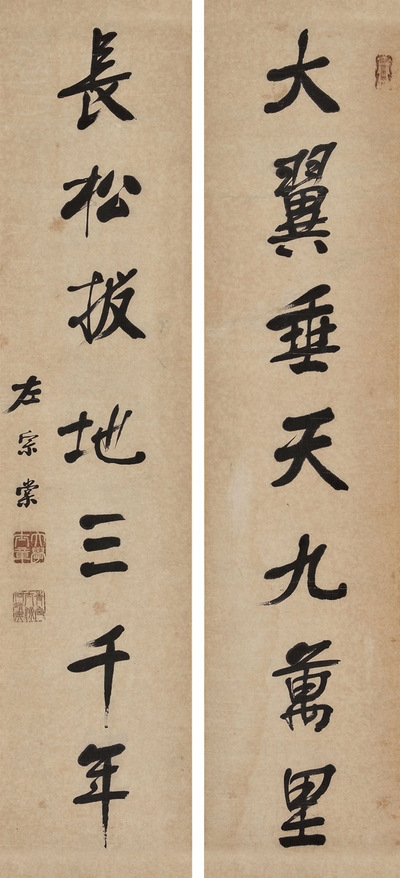 大翼垂天九萬里
長松拔地三千年
左宗棠